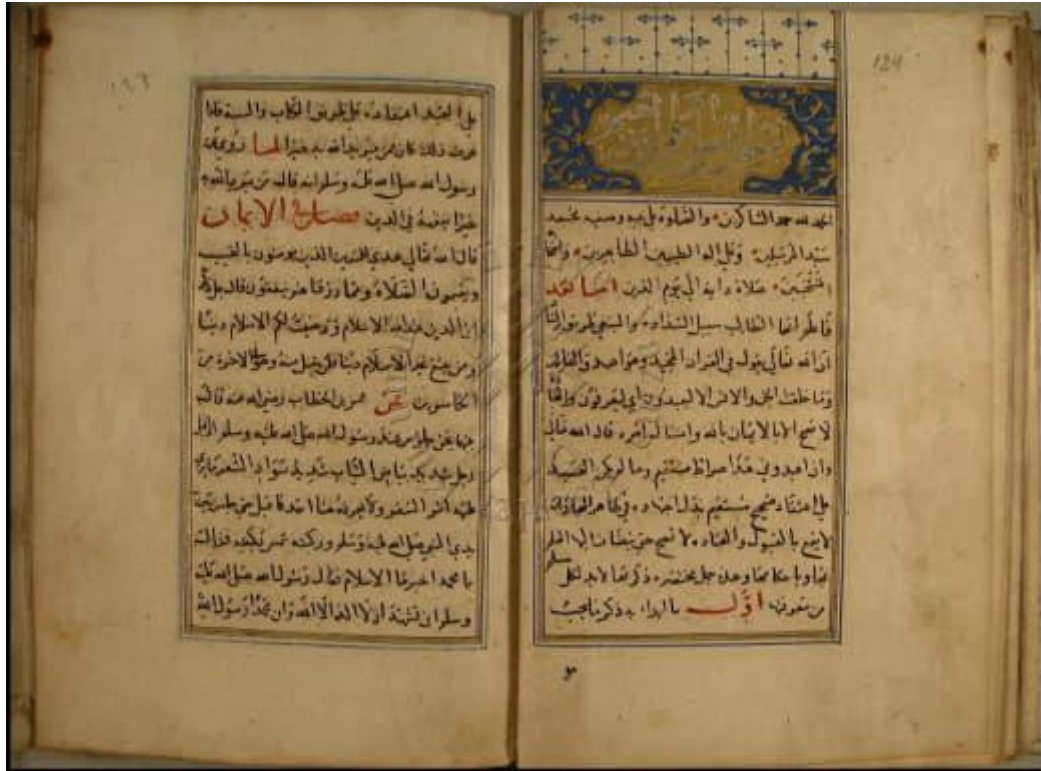 124
الحمد لله حمد الشاكرين والصلوة على نبيه وحبيبه محمد
سيد المرسلين وعلى اله الطيبين الطاهرين
صلاة دايمة الى يوم الدين اما بعد
فاعلم ايها الطالب سبيل السعادة والمبتغي طريق
ان الله تعالى يقول في القران المجيد وهو اصدق القائلين
وما خلقت الجن والانس الا ليعبدون اي ليعرفون
لا تصح الا بالايمان بالله وامتثال امره قال الله تعالى
وان اعبدوني هذا صراط مستقيم وما لم يكن العبد
على اعتقاد صحيح مستقيم
لا يقع بالقبول
بها وباحكامها وهذه جمل مختصرة ذكرتها لا بد لكل مسلم
من معرفتها اول ما ابدا به ذكر ما يجب
123
على العبد اعتقاده على طريق الكتاب والسنة فاذا
عرف ذلك كان ممن يريد الله به خيرا لما روي عن
رسول الله صلى الله عليه وسلم انه قال من يرد الله به
خيرا يفقهه في الدين الايمان
قال الله تعالى هدى للمتقين الذين يومنون بالغيب
ويقيمون الصلاة ومما رزقناهم ينفقون قال
ان الدين عند الله الاسلام ورضيت لكم الاسلام دينا
ومن يبتغ غير الاسلام دينا فلن يقبل منه وهو في الاخرة من
الخاسرين عن عمر بن الخطاب رضي الله عنه قال
بينما نحن جلوس عند رسول الله صلى الله عليه وسلم اذ اقبل
رجل شديد بياض الثياب شديد سواد الشعر
عليه اثر السفر ولا يعرفه منا احد فاقبل حتى جلس بين
يدي النبي صلى الله عليه وسلم وركبته تمس ركبته فقال
يا محمد اخبرنا الاسلام فقال رسول الله صلى الله عليه
وسلم ان تشهد ان لا اله الا الله وان محمدا رسول الله